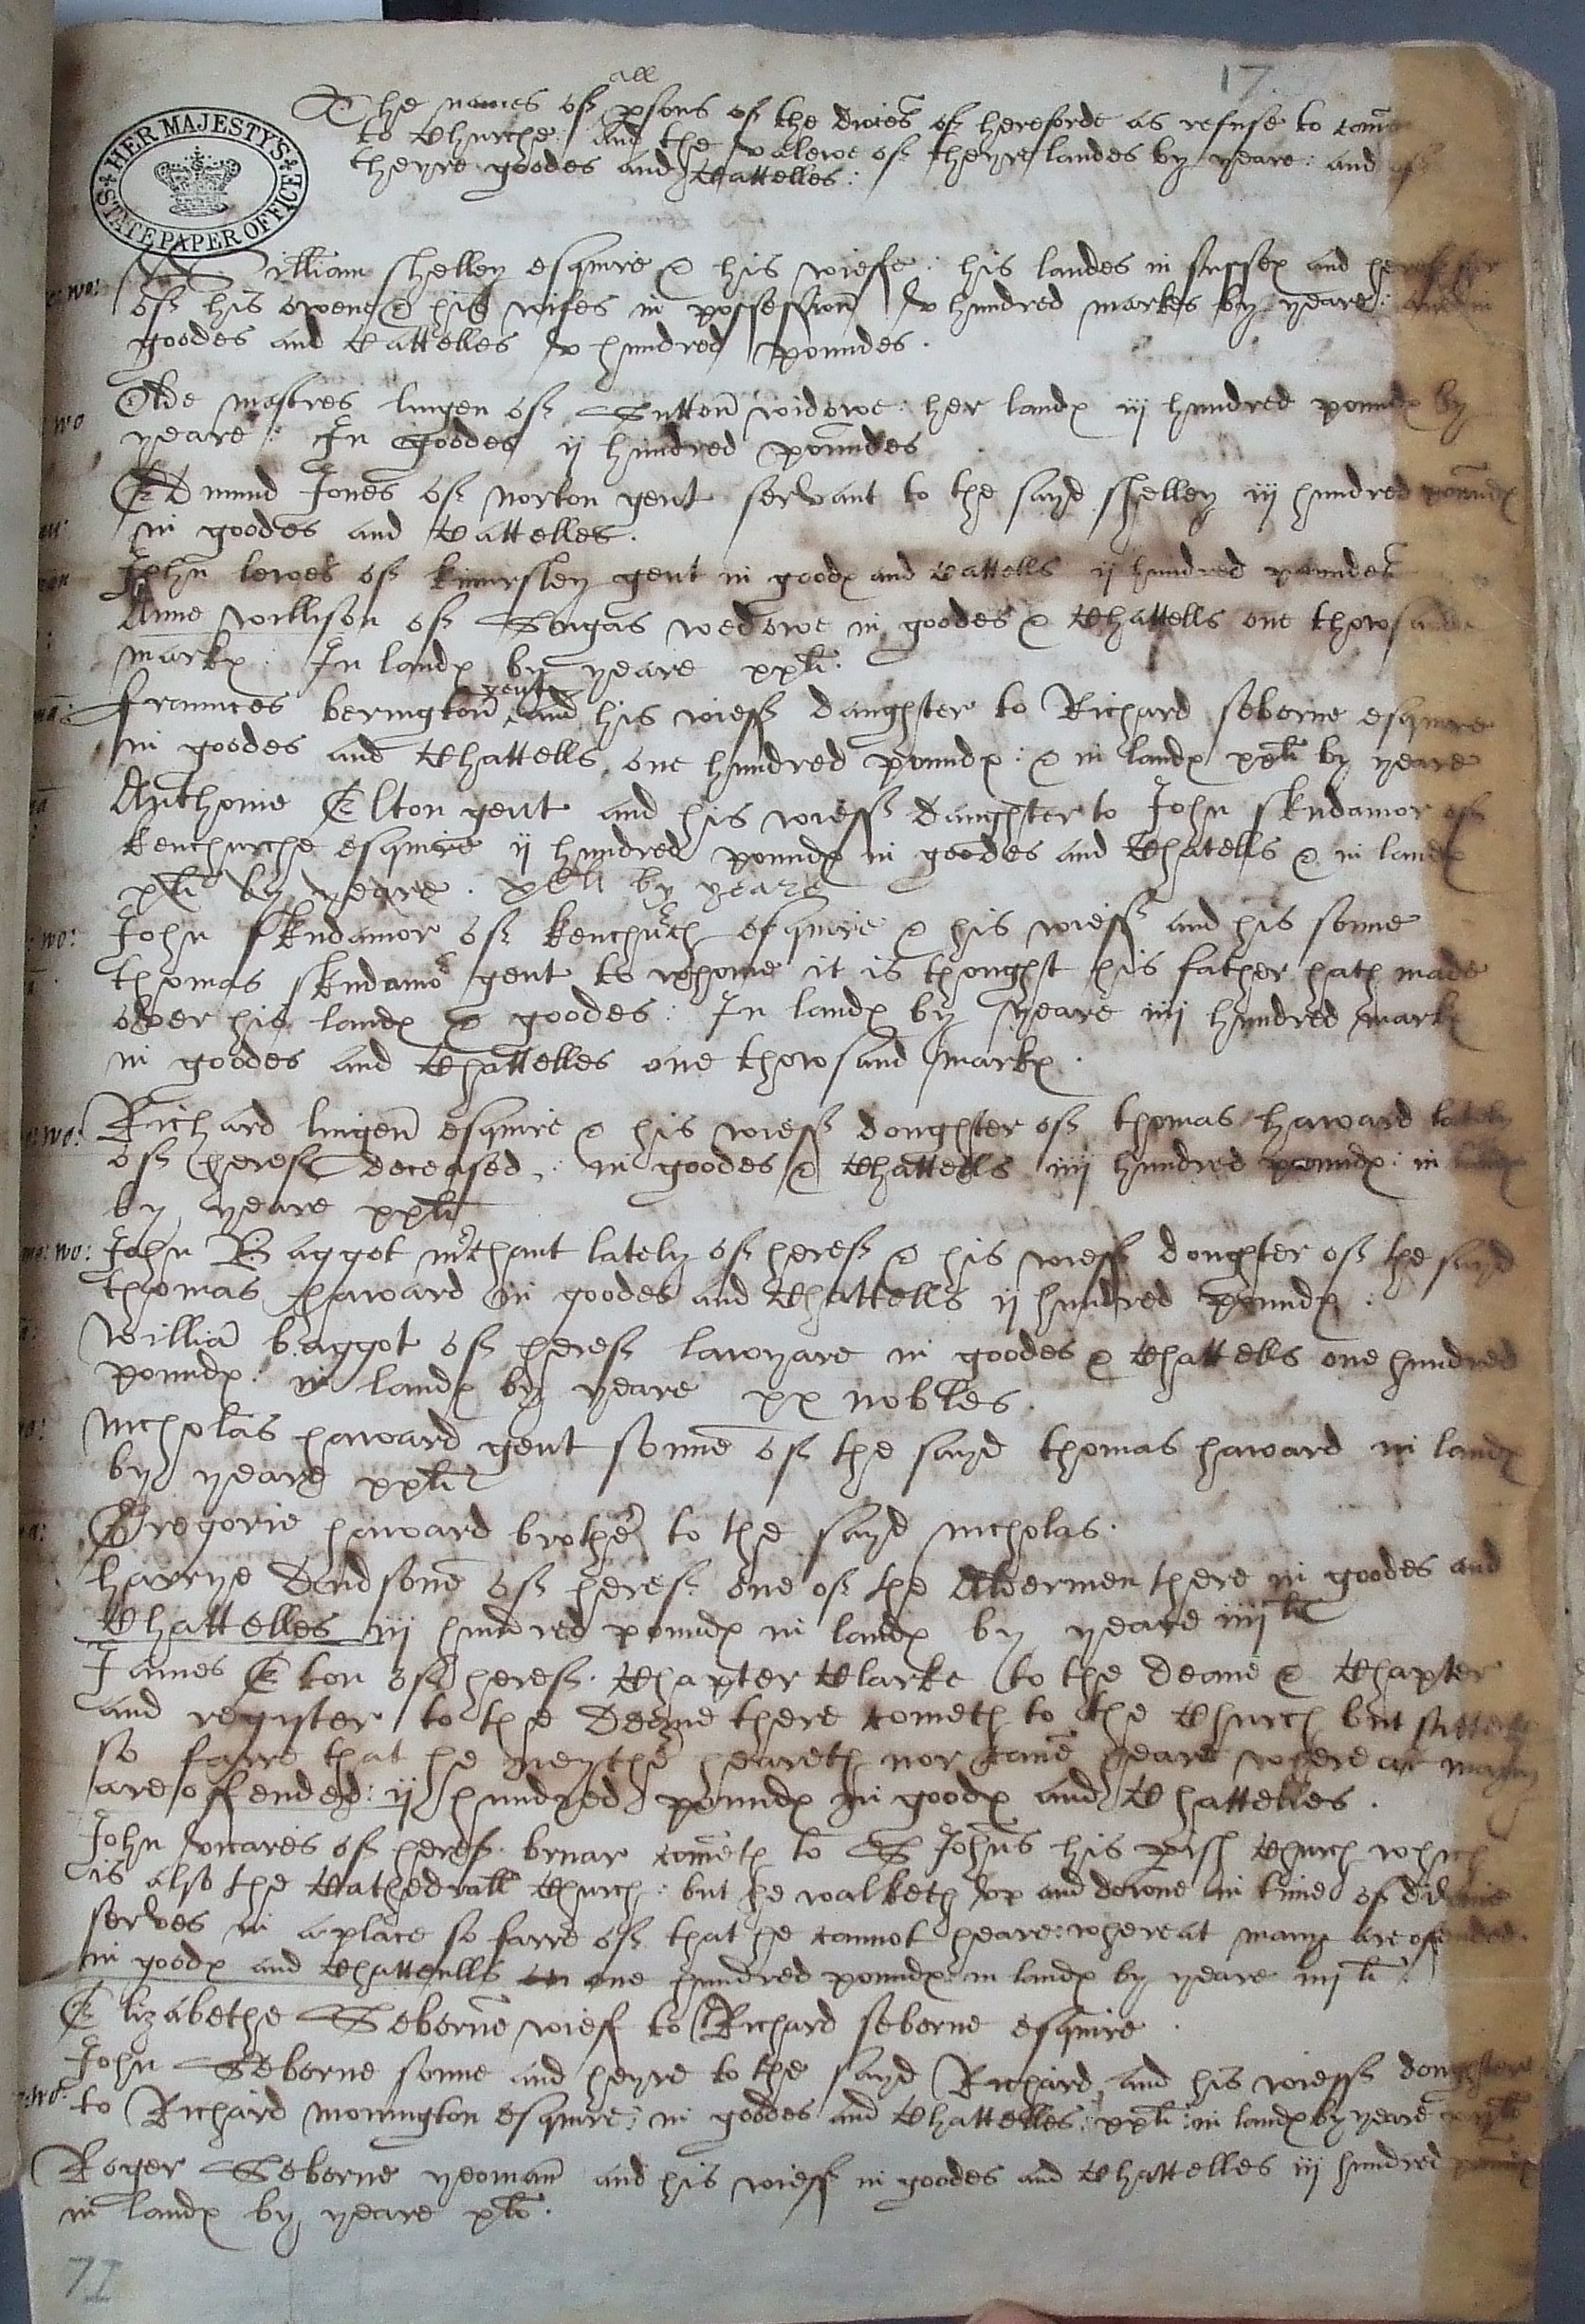 17
all
The names of psons of the dioces of hereforde as refuse to come
to Churche: And the valewe of theyre landes by yeare: and of
theyre goodes and Cattelles:
HER MAJESTY'S
STATE PAPER OFFICE
wo: William Shelley esquire & his wiefe: his landes in sussex and
of his owene & his wifes in possession v hundred markes by yeare: and in
goodes and Cattelles v hundred poundes.
wo Olde mastres lingen of Sutton widowe: her landes iij hundred poundes by
yeare: In goodes ij hundred poundes
Edmund Jones of Norton gent servant to the sayd shelley iij hundred poundes
in goodes and Cattelles.
John lewes of kinnrsley gent in goodes and Cattells ij hundred poundes
Anne willison of Sugas wedowe in goodes & Chattells one thowsande
markes: In landes by yeare xxli.
gent
Fraunces berington and his wieff daughter to Richard seborne esquire
in goodes and Chattells one hundred poundes: & in landes xxli by yeare
Anthonie Elton gent and his wieff daughter to John skudamor of
kenchurche esquire ij hundred poundes in goodes and Chatells & in landes
xli by yeare. xl li by yeare
wo: John Skudamor of kenchurch esquire & his wieff and his sonne
thomas skudamor gent to whome it is thought his father hath made
over his landes & goodes: In landes by yeare iiij hundred markes
in goodes and Chattelles one thowsand markes.
wo: Richard lingen esquire & his wieff doughter of thomas haward lately
of heref deceased: in goodes & Chattells iiij hundred poundes: in landes
by yeare xxli
wo: John Baggot mrchant lately of heref & his wieff doughter of the sayd
thomas haward in goodes and Chattells ij hundred poundes:
William baggot of heref lawyare in goodes & Chattells one hundred
poundes: in landes by yeare xx nobles.
Nicholas haward gent sonne of the sayd thomas haward in landes
by yeare xxli
Gregorie haward brother to the sayd Nicholas.
harrye dudsone of heref one of the Aldermen there in goodes and
Chattelles iij hundred poundes in landes by yeare iiij li
James Eton of heref. Chapter Clarke to the deane & Chapter
and register to the Deane there cometh to the Church but sitteth
so farre that he neyther heareth nor canne heare whereat many
are offended: ij hundred poundes in goodes and Chattelles.
John vicares of heref. bruar cometh to S Johns his pish Church which
is also the Cathedrall Church: but he walketh vp and downe in time of divine
serves in a place so farre of that he cannot heare: whereat many are offended.
in goodes and Chattenlls one hundred poundes in landes by yeare iiij li.
Elizabethe Seborne wief to Richard seborne esquire.
John Seborne sonne and heyre to the sayd Richard and his wieff doughtere
wo: to Richard monington esquire: in goodes and Chattelles: xxli: in landes by yeare
Roger Seborne yeoman and his wieff in goodes and Chattelles iij hundred
in landes by yeare xli.
71